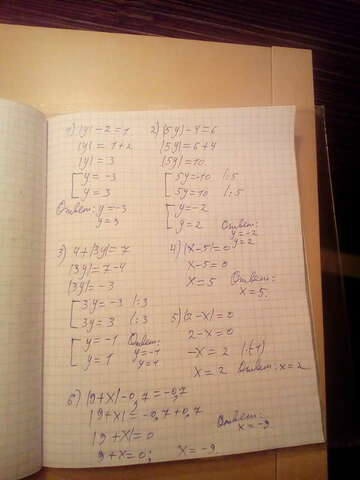 1) |y| - 2 = 1
|y| = 1 + 2
|y| = 3
[ y = -3
y = 3
Ответ: y = -3
y = 3
2) |5y| - 4 = 6
|5y| = 6 + 4
|5y| = 10
[ 5y = -10 |:5
5y = 10 |:5
[ y = -2
y = 2
Ответ:
y = -2
y = 2
3) 4 + |3y| = 7
|3y| = 7 - 4
|3y| = -3
[ 3y = -3 |:3
3y = 3 |:3
[ y = -1
y = 1
Ответ:
y = -1
y = 1
4) |x - 5| = 0
x - 5 = 0
x = 5
Ответ:
x = 5.
5) |2 - x| = 0
2 - x = 0
-x = 2 |:(-1)
x = 2 Ответ: x = 2
6) |9 + x| - 0,7 = -0,7
|9 + x| = -0,7 + 0,7
|9 + x| = 0
9 + x = 0; x = -9
Ответ:
x = -9